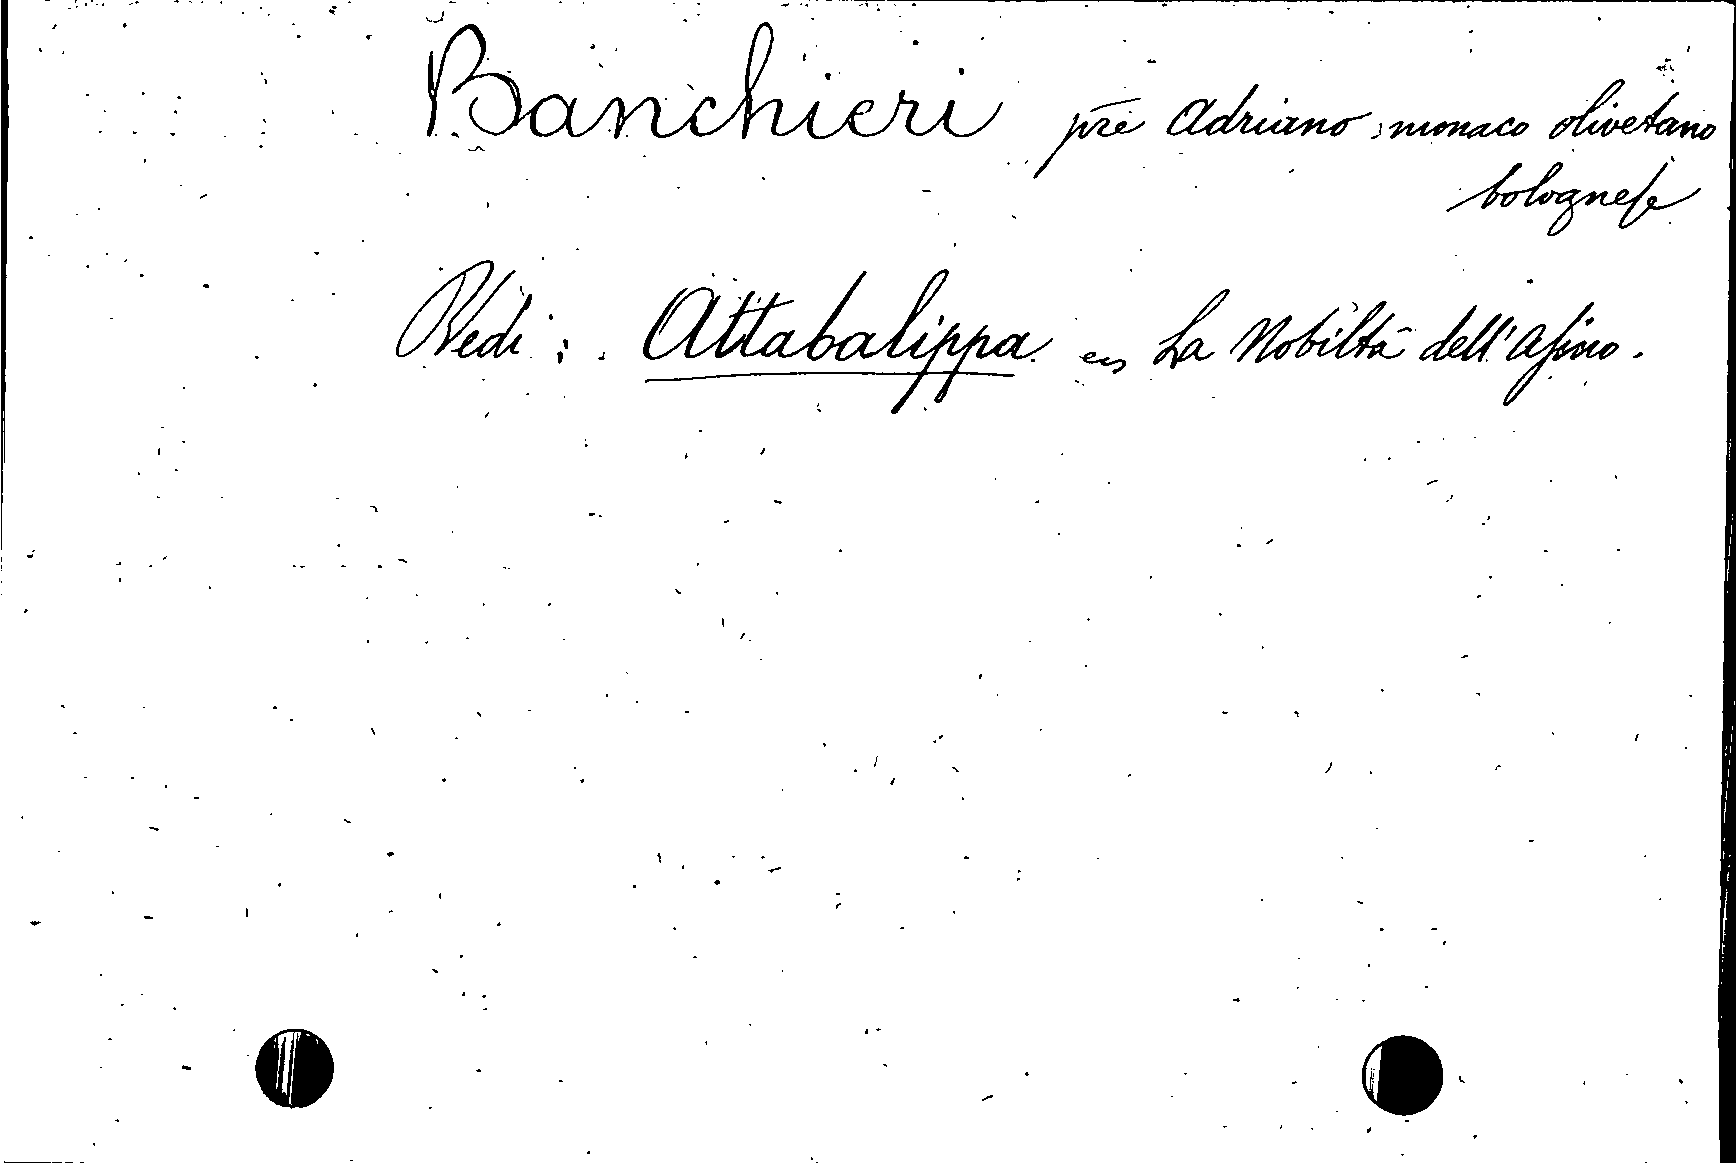 Banchieri pre Adriano, monaco olivetano
bolognese
Vedi: Attabalippa en La Nobiltà dell'Asino.